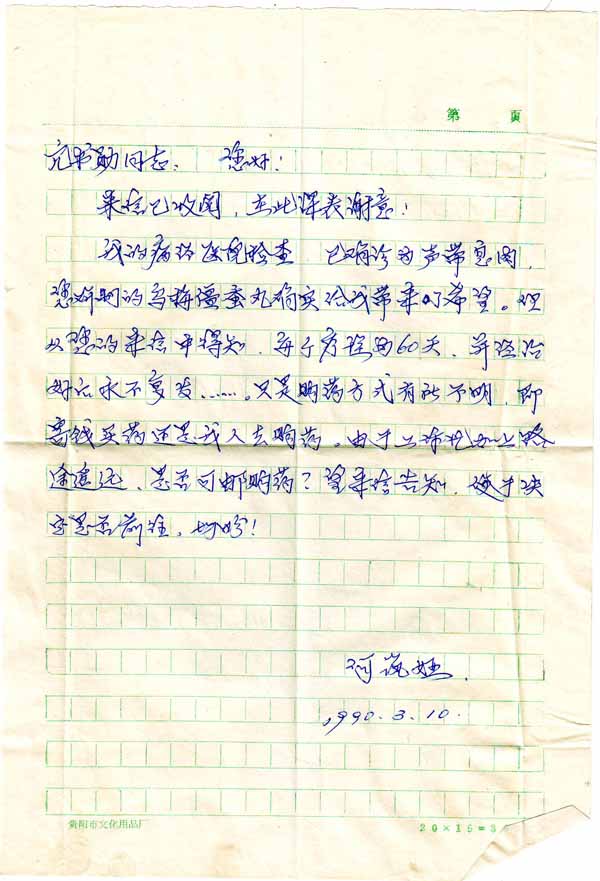 第 页
同志: 您好!
来信已收阅,在此深表谢意!
我的病经医院检查,已确诊为声带息肉,
您研制的乌梅僵蚕丸确实给我带来了希望。但
从您的来信中得知,每个疗程为60天,并经治
好后永不复发……。只是购药方式有些不明,即
寄钱买药还是我人去购药。由于工作忙加上路
途遥远,是否可邮购药?望来信告知,便于决
定是否前往。切盼!
1990.3.10.
贵阳市文化用品厂
20×15=3